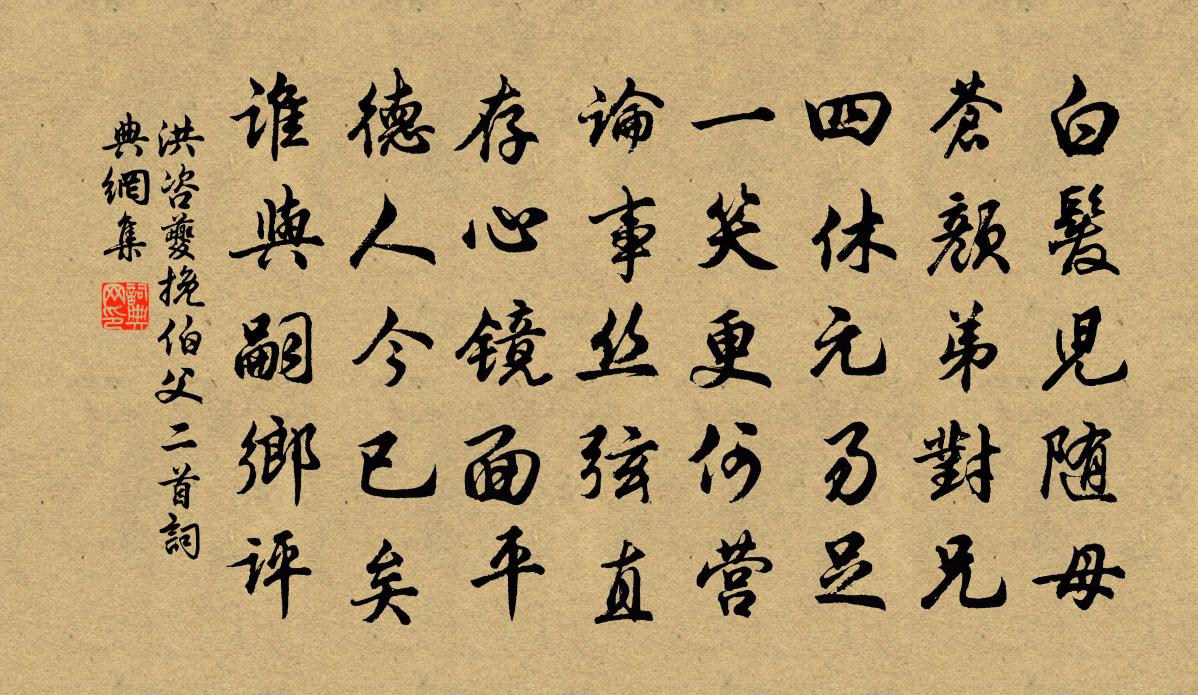 白髮兒随母
蒼顔弟對兄
四休元易足
一笑更何营
論事丝弦直
存心镜面平
德人今已矣
誰與嗣鄉評
洪咨夔挽伯父二首詞
典網集
詞典
网印